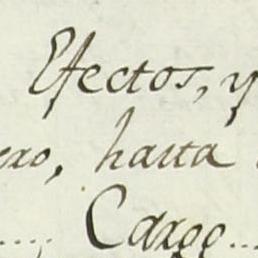 Efectos, y
ero, hasta
Cargo